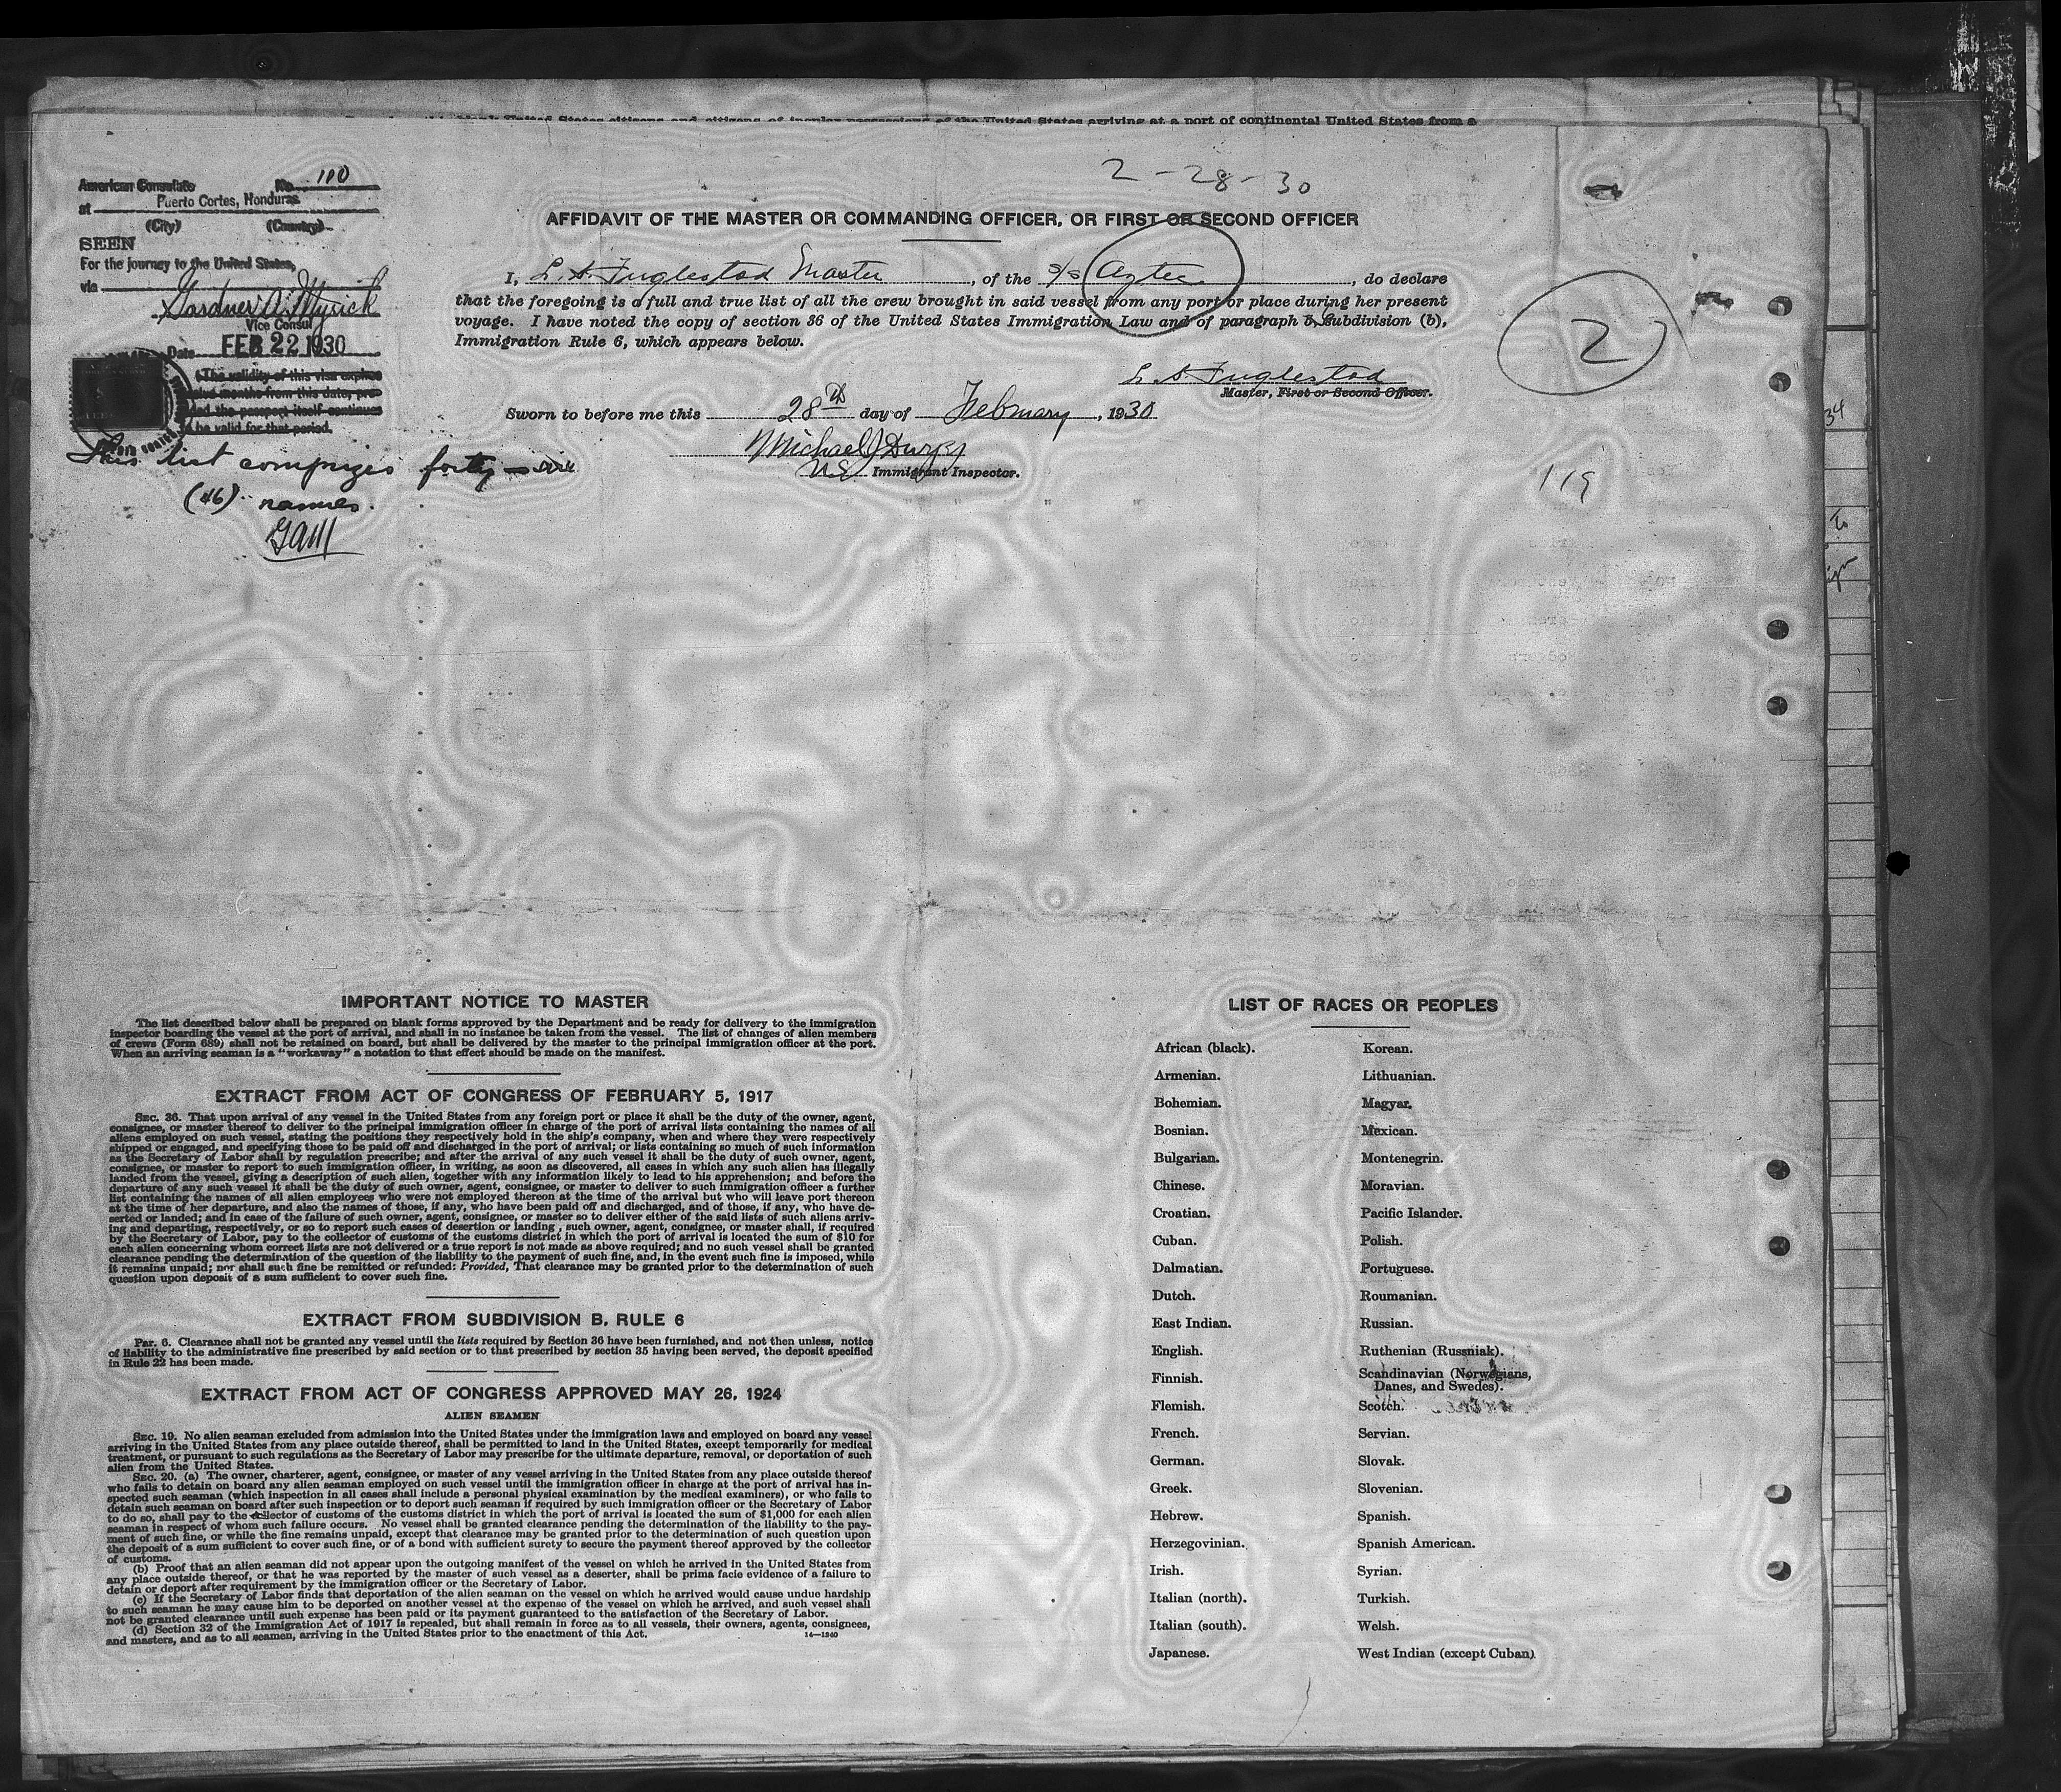 United States citizens and citizens of insular possessions of the United States arriving at a port of continental United States from a
2-28-30
American Consulate No. 100
at Puerto Cortes, Honduras
(City) (Country)
SEEN
For the journey to the United States,
via
Gardner A. Myrick
Vice Consul
Date FEB 22 1930
(The validity of this visa expires
months from this date, pro-
ded the passport itself continues
be valid for that period.
This list comprizes forty-six
(46) names.
GAM
AFFIDAVIT OF THE MASTER OR COMMANDING OFFICER, OR FIRST OR SECOND OFFICER
I, L. A. Fuglestad Master, of the S/S Aztec, do declare
that the foregoing is a full and true list of all the crew brought in said vessel from any port or place during her present
voyage. I have noted the copy of section 36 of the United States Immigration Law and of paragraph 6, Subdivision (b),
Immigration Rule 6, which appears below.
L. A. Fuglestad
Master, First or Second Officer.
Sworn to before me this 28th day of February, 1930
Michael J
US Immigrant Inspector.
2
119
34
To
IMPORTANT NOTICE TO MASTER
The list described below shall be prepared on blank forms approved by the Department and be ready for delivery to the immigration
inspector boarding the vessel at the port of arrival, and shall in no instance be taken from the vessel. The list of changes of alien members
of crews (Form 689) shall not be retained on board, but shall be delivered by the master to the principal immigration officer at the port.
When an arriving seaman is a "workaway" a notation to that effect should be made on the manifest.
EXTRACT FROM ACT OF CONGRESS OF FEBRUARY 5, 1917
SEC. 36. That upon arrival of any vessel in the United States from any foreign port or place it shall be the duty of the owner, agent,
consignee, or master thereof to deliver to the principal immigration officer in charge of the port of arrival lists containing the names of all
aliens employed on such vessel, stating the positions they respectively hold in the ship's company, when and where they were respectively
shipped or engaged, and specifying those to be paid off and discharged in the port of arrival; or lists containing so much of such information
as the Secretary of Labor shall by regulation prescribe; and after the arrival of any such vessel it shall be the duty of such owner, agent,
consignee, or master to report to such immigration officer, in writing, as soon as discovered, all cases in which any such alien has illegally
landed from the vessel, giving a description of such alien, together with any information likely to lead to his apprehension; and before the
departure of any such vessel it shall be the duty of such owner, agent, consignee, or master to deliver to such immigration officer a further
list containing the names of all alien employees who were not employed thereon at the time of the arrival but who will leave port thereon
at the time of her departure, and also the names of those, if any, who have been paid off and discharged, and of those, if any, who have de-
serted or landed; and in case of the failure of such owner, agent, consignee, or master so to deliver either of the said lists of such aliens arriv-
ing and departing, respectively, or so to report such cases of desertion or landing, such owner, agent, consignee, or master shall, if required
by the Secretary of Labor, pay to the collector of customs of the customs district in which the port of arrival is located the sum of $10 for
each alien concerning whom correct lists are not delivered or a true report is not made as above required; and no such vessel shall be granted
clearance pending the determination of the question of the liability to the payment of such fine, and, in the event such fine is imposed, while
it remains unpaid; nor shall such fine be remitted or refunded: Provided, That clearance may be granted prior to the determination of such
question upon deposit of a sum sufficient to cover such fine.
EXTRACT FROM SUBDIVISION B, RULE 6
Par. 6. Clearance shall not be granted any vessel until the lists required by Section 36 have been furnished, and not then unless, notice
of liability to the administrative fine prescribed by said section or to that prescribed by section 35 having been served, the deposit specified
in Rule 22 has been made.
EXTRACT FROM ACT OF CONGRESS APPROVED MAY 26, 1924
ALIEN SEAMEN
SEC. 19. No alien seaman excluded from admission into the United States under the immigration laws and employed on board any vessel
arriving in the United States from any place outside thereof, shall be permitted to land in the United States, except temporarily for medical
treatment, or pursuant to such regulations as the Secretary of Labor may prescribe for the ultimate departure, removal, or deportation of such
alien from the United States.
SEC. 20. (a) The owner, charterer, agent, consignee, or master of any vessel arriving in the United States from any place outside thereof
who fails to detain on board any alien seaman employed on such vessel until the immigration officer in charge at the port of arrival has in-
spected such seaman (which inspection in all cases shall include a personal physical examination by the medical examiners), or who fails to
detain such seaman on board after such inspection or to deport such seaman if required by such immigration officer or the Secretary of Labor
to do so, shall pay to the collector of customs of the customs district in which the port of arrival is located the sum of $1,000 for each alien
seaman in respect of whom such failure occurs. No vessel shall be granted clearance pending the determination of the liability to the pay-
ment of such fine, or while the fine remains unpaid, except that clearance may be granted prior to the determination of such question upon
the deposit of a sum sufficient to cover such fine, or of a bond with sufficient surety to secure the payment thereof approved by the collector
of customs.
(b) Proof that an alien seaman did not appear upon the outgoing manifest of the vessel on which he arrived in the United States from
any place outside thereof, or that he was reported by the master of such vessel as a deserter, shall be prima facie evidence of a failure to
detain or deport after requirement by the immigration officer or the Secretary of Labor.
(c) If the Secretary of Labor finds that deportation of the alien seaman on the vessel on which he arrived would cause undue hardship
to such seaman he may cause him to be deported on another vessel at the expense of the vessel on which he arrived, and such vessel shall
not be granted clearance until such expense has been paid or its payment guaranteed to the satisfaction of the Secretary of Labor.
(d) Section 32 of the Immigration Act of 1917 is repealed, but shall remain in force as to all vessels, their owners, agents, consignees,
and masters, and as to all seamen, arriving in the United States prior to the enactment of this Act. 14-1240
LIST OF RACES OR PEOPLES
African (black). Korean.
Armenian. Lithuanian.
Bohemian. Magyar.
Bosnian. Mexican.
Bulgarian. Montenegrin.
Chinese. Moravian.
Croatian. Pacific Islander.
Cuban. Polish.
Dalmatian. Portuguese.
Dutch. Roumanian.
East Indian. Russian.
English. Ruthenian (Russniak).
Finnish. Scandinavian (Norwegians,
Danes, and Swedes).
Flemish. Scotch.
French. Servian.
German. Slovak.
Greek. Slovenian.
Hebrew. Spanish.
Herzegovinian. Spanish American.
Irish. Syrian.
Italian (north). Turkish.
Italian (south). Welsh.
Japanese. West Indian (except Cuban).